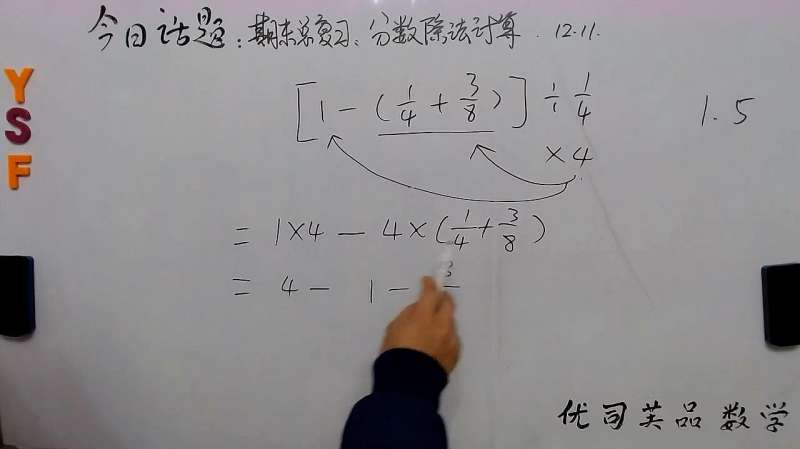 今日话题：期末总复习：分数除法计算. 12.11.
YSF
[1-(1/4+3/8)]÷1/4
1.5
×4
=1×4-4×(1/4+3/8)
=4-1-3
优司芙品数学